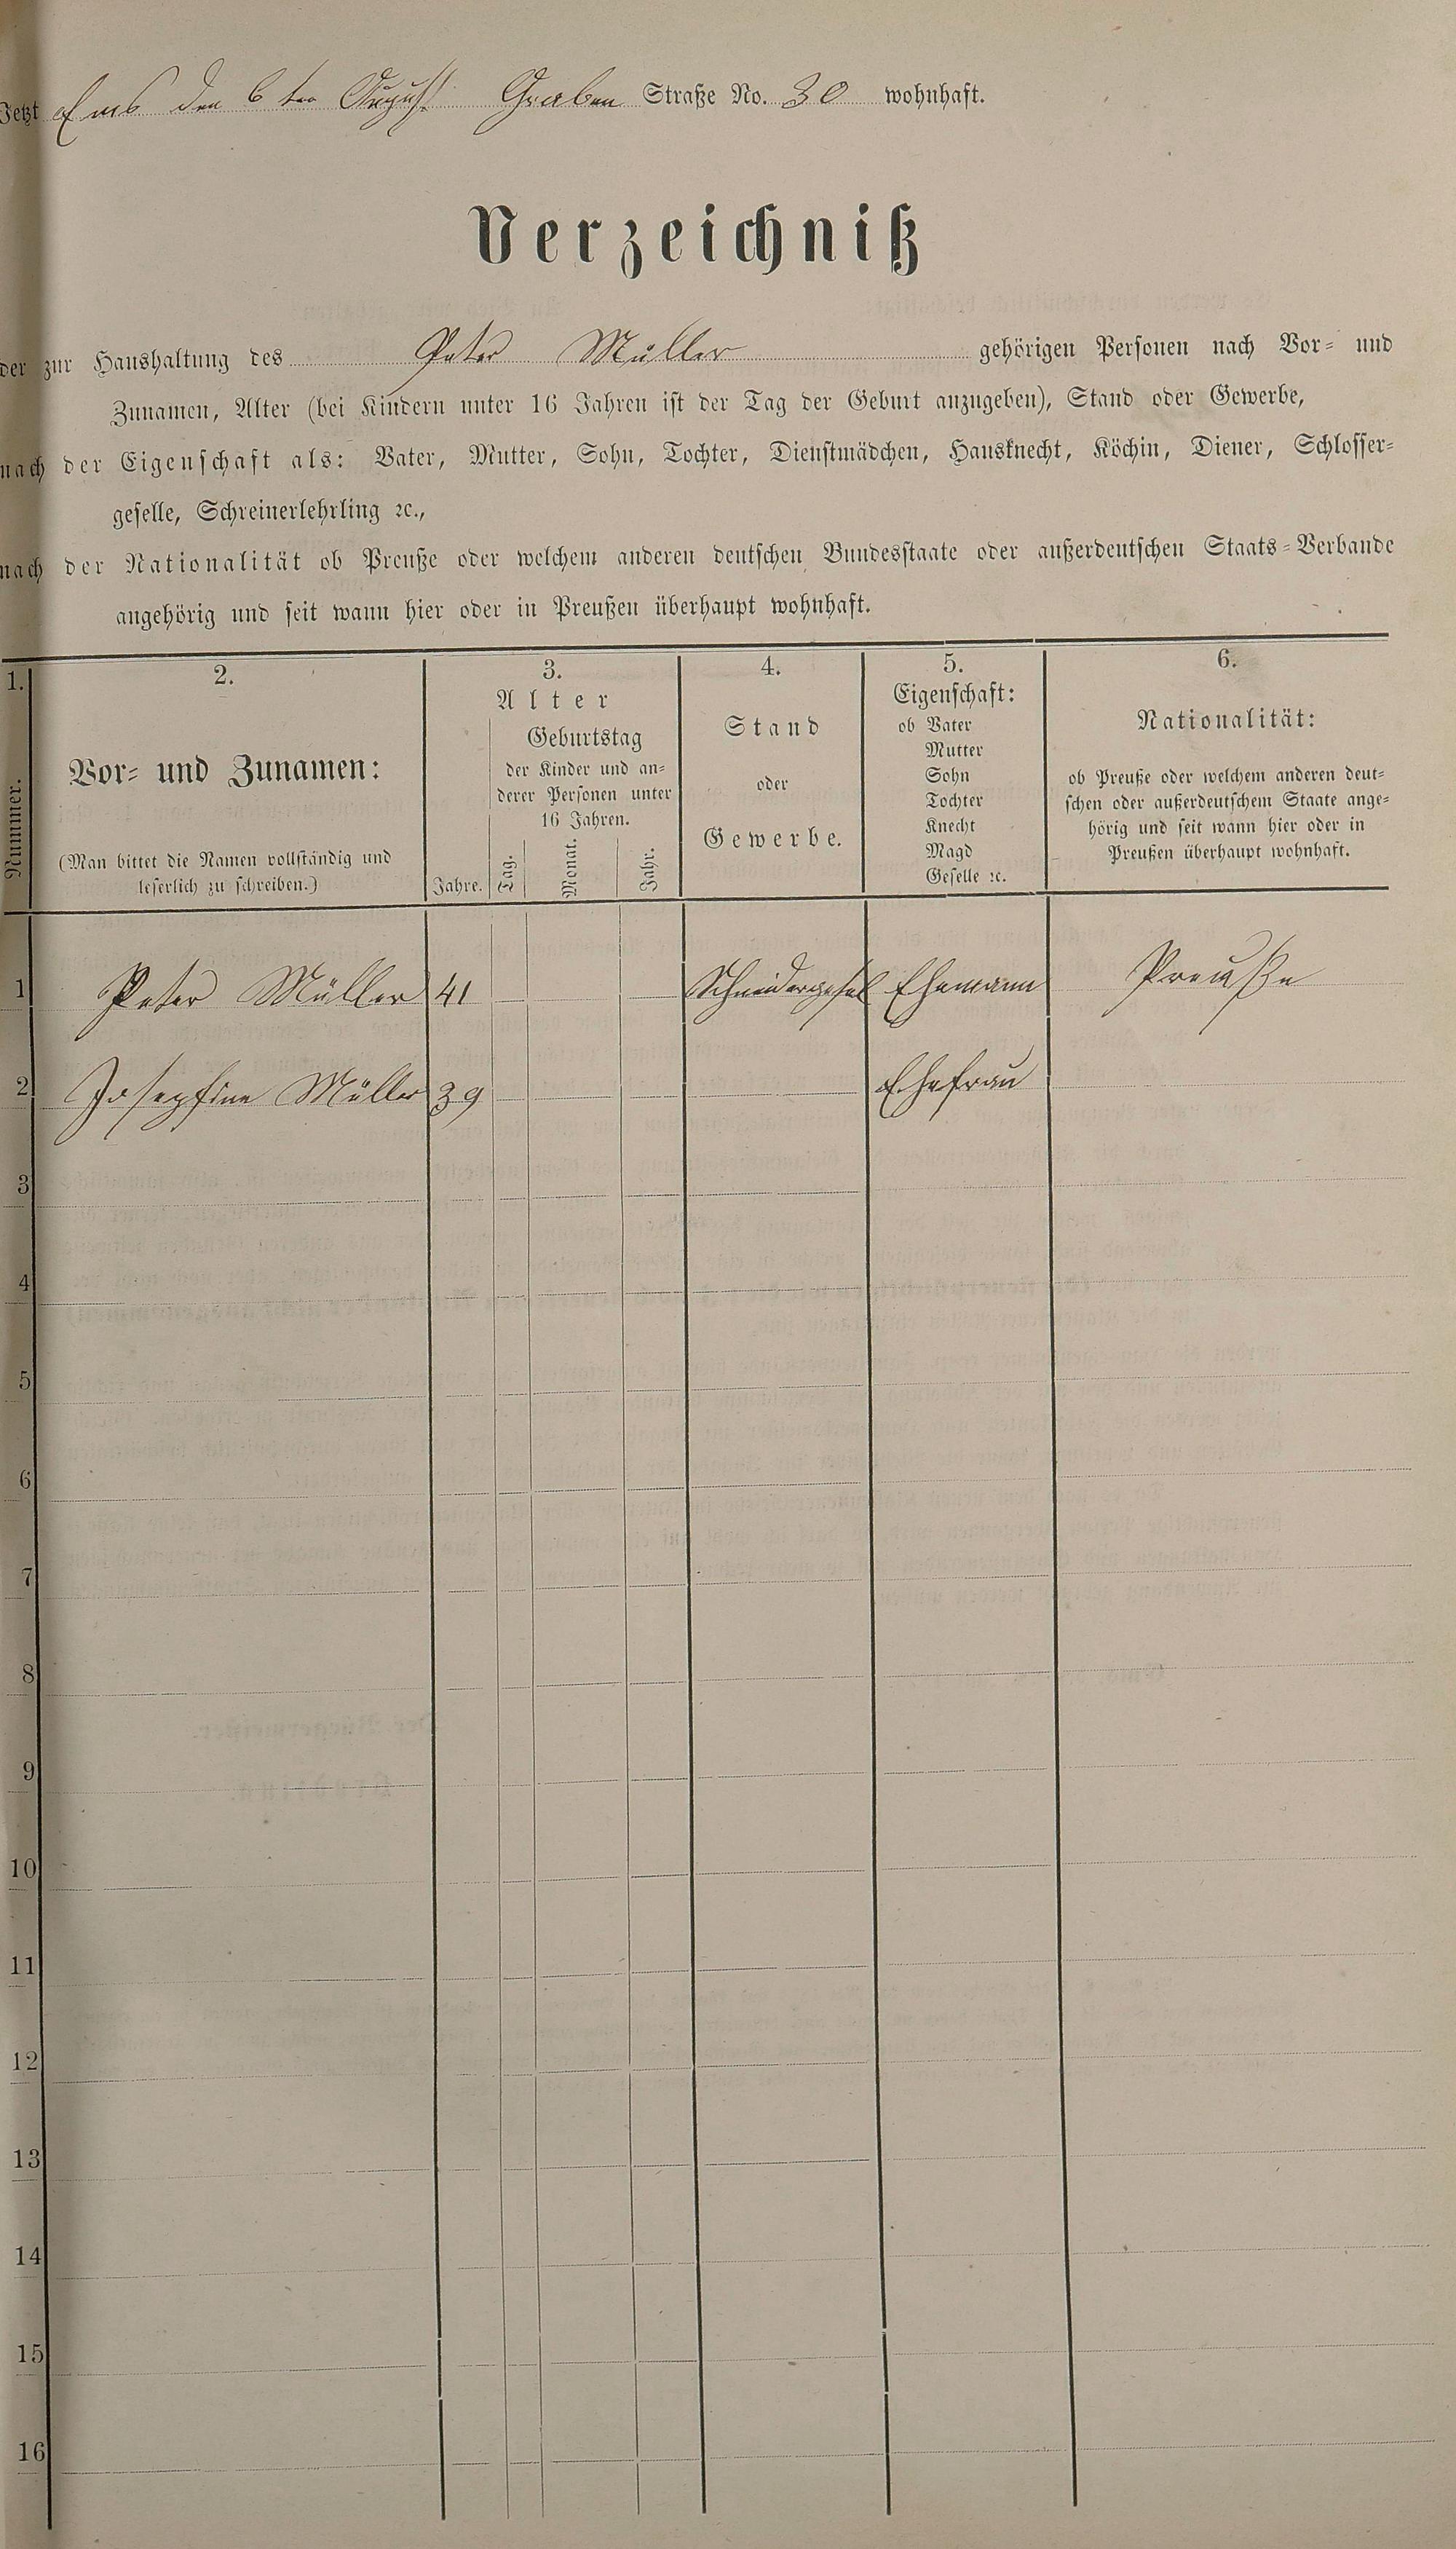 Jetzt Ems den 6ten August Graben Straße No. 30 wohnhaft.
Verzeichniß
der zur Haushaltung des Peter Müller gehörigen Personen nach Vor- und
Zunamen, Alter (bei Kindern unter 16 Jahren ist der Tag der Geburt anzugeben), Stand oder Gewerbe,
nach der Eigenschaft als: Vater, Mutter, Sohn, Tochter, Dienstmädchen, Hausknecht, Köchin, Diener, Schlosser-
geselle, Schreinerlehrling ꝛc.,
nach der Nationalität ob Preuße oder welchem anderen deutschen Bundesstaate oder außerdeutschen Staats-Verbande
angehörig und seit wann hier oder in Preußen überhaupt wohnhaft.
1.
Nummer.
2.
Vor- und Zunamen:
(Man bittet die Namen vollständig und
leserlich zu schreiben.)
3.
Alter
Jahre.
Geburtstag
der Kinder und an-
derer Personen unter
16 Jahren.
Tag. Monat. Jahr.
4.
Stand
oder
Gewerbe.
5.
Eigenschaft:
ob Vater
Mutter
Sohn
Tochter
Knecht
Magd
Geselle ꝛc.
6.
Nationalität:
ob Preuße oder welchem anderen deut-
schen oder außerdeutschem Staate ange-
hörig und seit wann hier oder in
Preußen überhaupt wohnhaft.
1 Peter Müller 41 Schneidergesel Ehemann Preuße
2 Josepfine Müller 39 Ehefrau
3
4
5
6
7
8
9
10
11
12
13
14
15
16